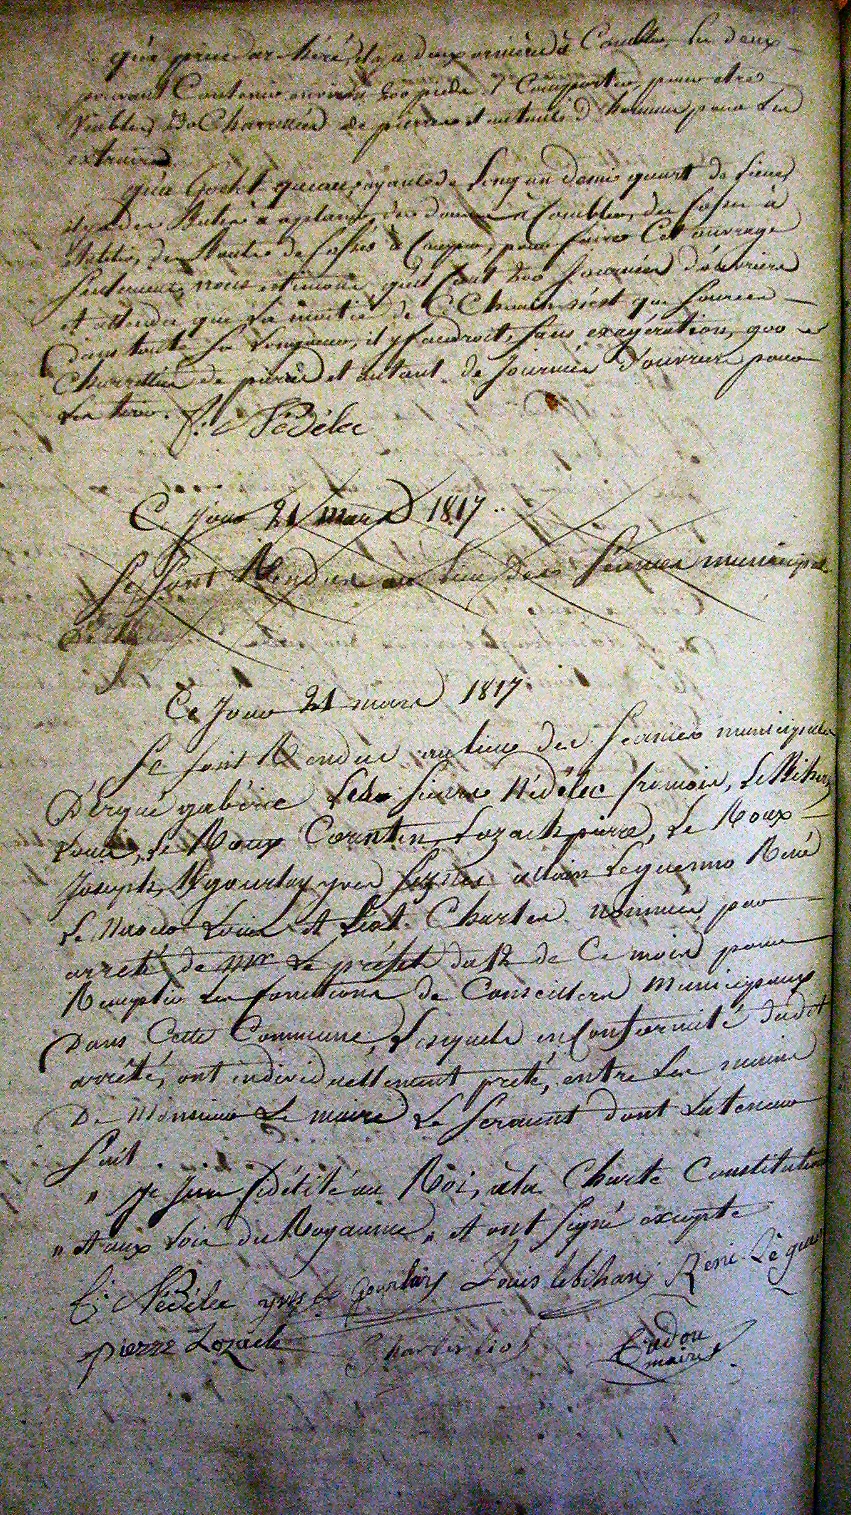 qu'a deux ornières à Combler, les deux
pouvant Contenir environ 200 pieds et Comporter, pour etre
Comblés, 30 Charretées de pierres et autant d'hommes pour les
extraire
qu'au ayant de Long un demi quart de lieue,
il y a des Buttes à applanir, des douves à Combler, des fossés à
établir, des Bouts de fossés à Couper, pour faire Cet ouvrage
Seulement, nous estimons qu'il faut 200 Journées d'ouvriers
et attendu que la moitié de Ce Chemin n'est que Sources
dans toute Sa Longueur, il y faudroit, Sans exagération, 900
Charretées de pierres et autant de Journées d'ouvriers pour
Les tirer. f: Nédélec
Ce Jour 21 mars 1817
Se sont Rendus au lieu des Séances municipales
Ce Jour 21 mars 1817
Se sont Rendus au lieu des Séances municipales
D'Ergué gabéric Les Sieurs Nédélec françois, Le Bihan
Louis, Le Roux Corentin, Lozach pierre, Le Roux
Joseph, Le gourlay yves allain Leguenno René
Le Louis et Liot Charles nommés par
arreté de Mr Le préfet du 12 de Ce mois pour
Remplir Les fonctions de Conseillers Municipaux
Dans Cette Commune, Lesquels en Conformité dudit
arrêté, ont individuellement prété, entre Les mains
De Monsieur Le maire Le Serment dont La teneur
Suit.
" Je Jure fidélité au Roi, à la Charte Constitutionnelle
" et aux Lois du Royaume, " et ont Signé excepté
f: Nédélec yves Le gourlay Louis lebihan René Le guenno
pierre Lozach Charles liot
maire